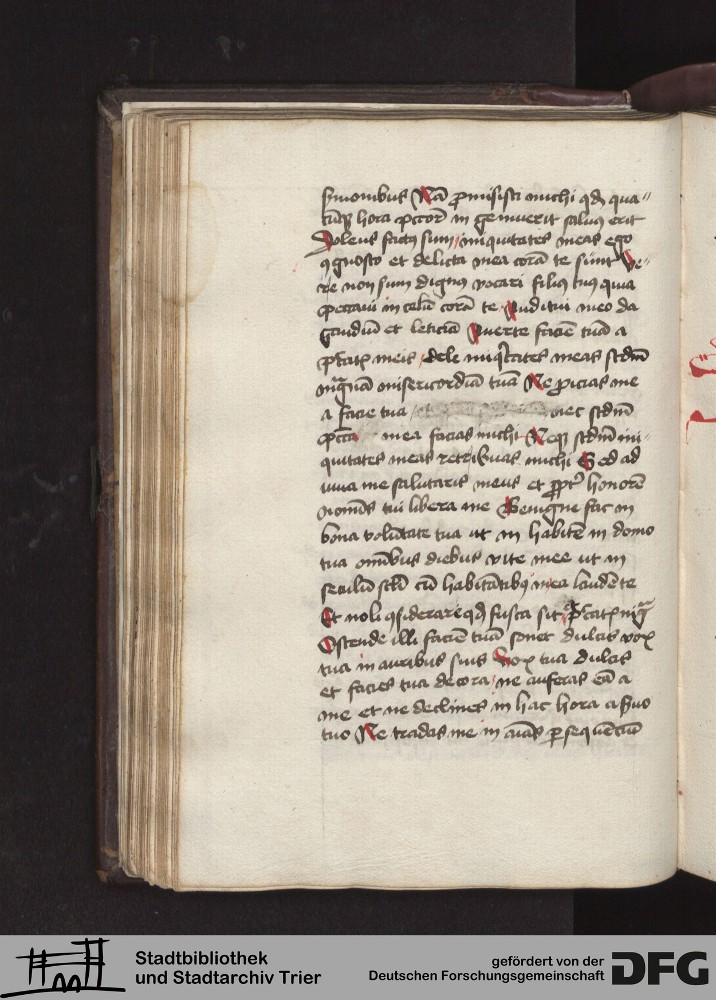 Nā promisisti michi qđ qua"
cūqȝ hora pctor̄ in gemuerit saluus erit
Dolens factus sum iniquitates meas ego
cognosco et delicta mea corā te sunt Ve-
re non sum dignus vocari filius tuus quia
peccaui in celū corā te Auditui meo da
gaudiū et leticiā Auerte faciē tuā a
pctātis meis dele iniqtates meas scdm̄
mgnā misericordiā tuā Ne proicias me
a facie tua nec scdm̄
pctā mea facias michi Neqȝ scdm̄ ini-
quitates meas retribuas michi Sed ad
iuua me salutaris meus et ppt̄ honorē
nomīs tui libera me Benigne fac in
bona volūtate tua ut in habitē in domo
tua omībus diebus vite mee ut in
seculū scli cū habitātibus in ea laudē te
Et noli cōsiderare qđ fusca sit
Ostende illi faciē tuā sonet dulcis vox
tua in auribus suis Vox tua dulcis
et facies tua decora ne auferas eā a
me et ne declines in hac hora a suo
tuo Ne tradas me in aīas persequēciū
Stadtbibliothek
und Stadtarchiv Trier
gefördert von der
Deutschen Forschungsgemeinschaft
DFG